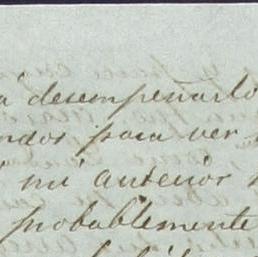 á desempeñarlo
ndor para ver
mi anterior
probablemente